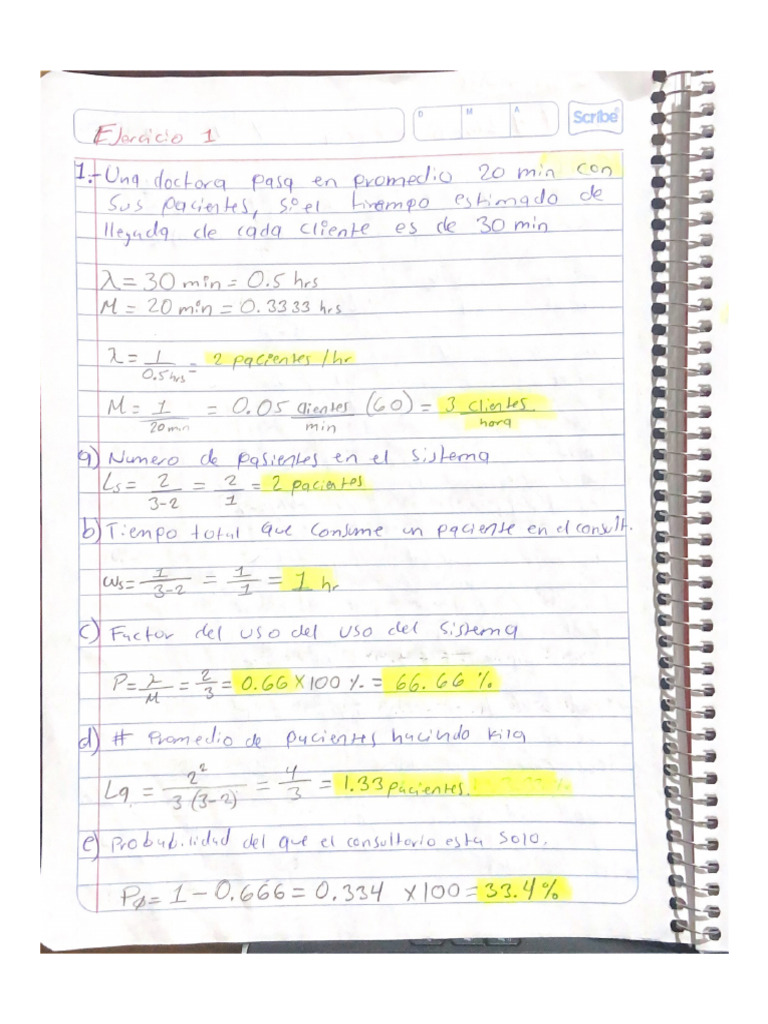 Ejercicio 1
D M A
Scribe®
1.- Una doctora pasa en promedio 20 min con
sus pacientes, si el tiempo estimado de
llegada de cada cliente es de 30 min
λ = 30 min = 0.5 hrs
M = 20 min = 0.3333 hrs
λ = 1/0.5 hrs = 2 pacientes/hr
M = 1/20 min = 0.05 clientes/min (60) = 3 clientes/hora
a) Numero de pasientes en el sistema
Ls = 2/3-2 = 2/1 = 2 pacientes
b) Tiempo total que consume un paciente en el consult.
Ws = 1/3-2 = 1/1 = 1 hr
c) Factor del uso del uso del sistema
P = λ/M = 2/3 = 0.66 x 100 % = 66.66 %
d) # Promedio de pacientes haciendo kila
Lq = 2²/3(3-2) = 4/3 = 1.33 pacientes.
e) Probabilidad del que el consultorio esta solo.
Pø = 1 - 0.666 = 0.334 x100 = 33.4 %